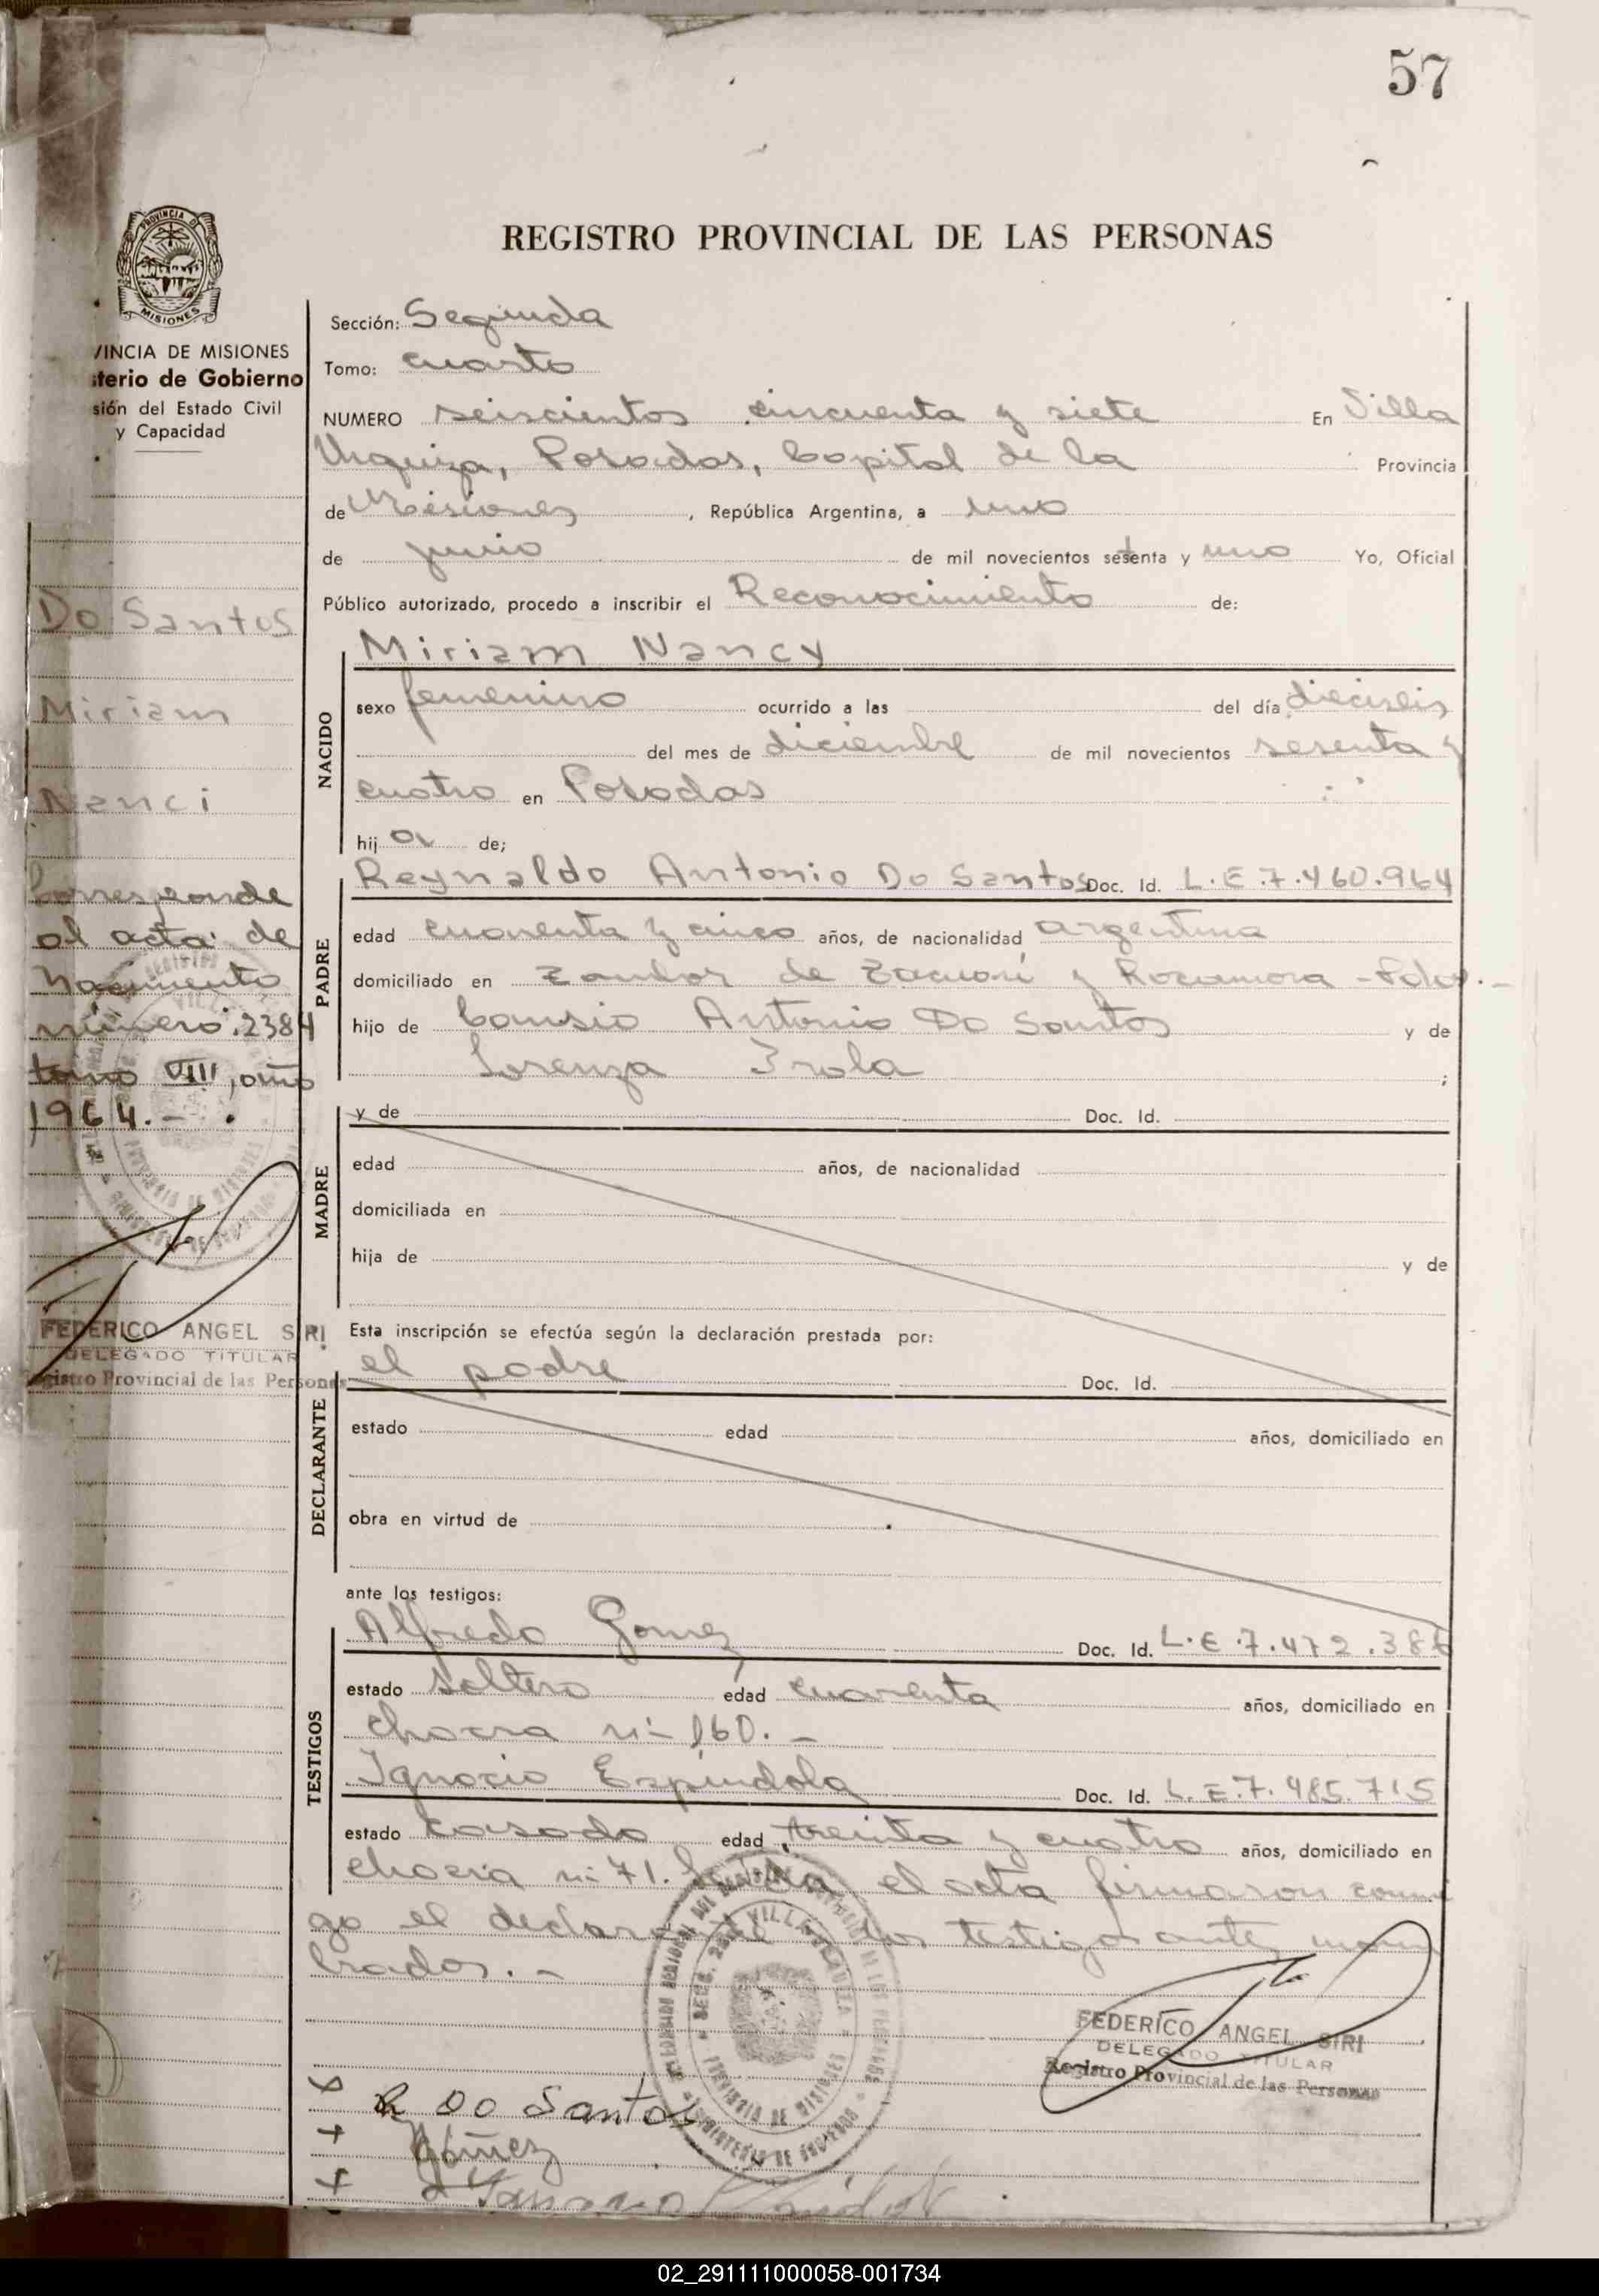 57
REGISTRO PROVINCIAL DE LAS PERSONAS
PROVINCIA DE
MISIONES
VINCIA DE MISIONES
sterio de Gobierno
sión del Estado Civil
y Capacidad
Do Santos
Miriam
Nanci
Corresponde
al acta de
Nacimiento
número 2384
tomo VIII, año
1964.-
FEDERICO ANGEL SIRI
DELEGADO TITULAR
Registro Provincial de las Personas
Sección: Segunda
Tomo: cuarto
NUMERO seiscientos cincuenta y siete En Villa
Urquiza, Posadas, Capital de la Provincia
de Misiones, República Argentina, a uno
de junio de mil novecientos setenta y uno Yo, Oficial
Público autorizado, procedo a inscribir el Reconocimiento de:
Miriam Nancy
NACIDO
sexo femenino ocurrido a las del día dieciseis
del mes de diciembre de mil novecientos sesenta y
cuatro en Posadas
hija de;
PADRE
Reynaldo Antonio Do Santos Doc. Id. L.E.7.460.964
edad cuarenta y cinco años, de nacionalidad argentina
domiciliado en de y Rocamora - Pdas.-
hijo de Antonio Do Santos y de
Lorenza ;
MADRE
y de Doc. Id.
edad años, de nacionalidad
domiciliada en
hija de y de
Esta inscripción se efectúa según la declaración prestada por:
DECLARANTE
el padre Doc. Id.
estado edad años, domiciliado en
obra en virtud de
ante los testigos:
TESTIGOS
Alfredo Gomez Doc. Id. L.E.7.472.386
estado soltero edad cuarenta años, domiciliado en
chacra nº 160.-
Ignacio Espindola Doc. Id. L.E.7.485.715
estado casado edad treinta y cuatro años, domiciliado en
chacra nº 71. Leída el acta firmaron conmi
go el declarante y los testigos antes nom
brados.-
FEDERICO ANGEL SIRI
DELEGADO TITULAR
Registro Provincial de las Personas
R Do Santos
Gómez
02_291111000058-001734